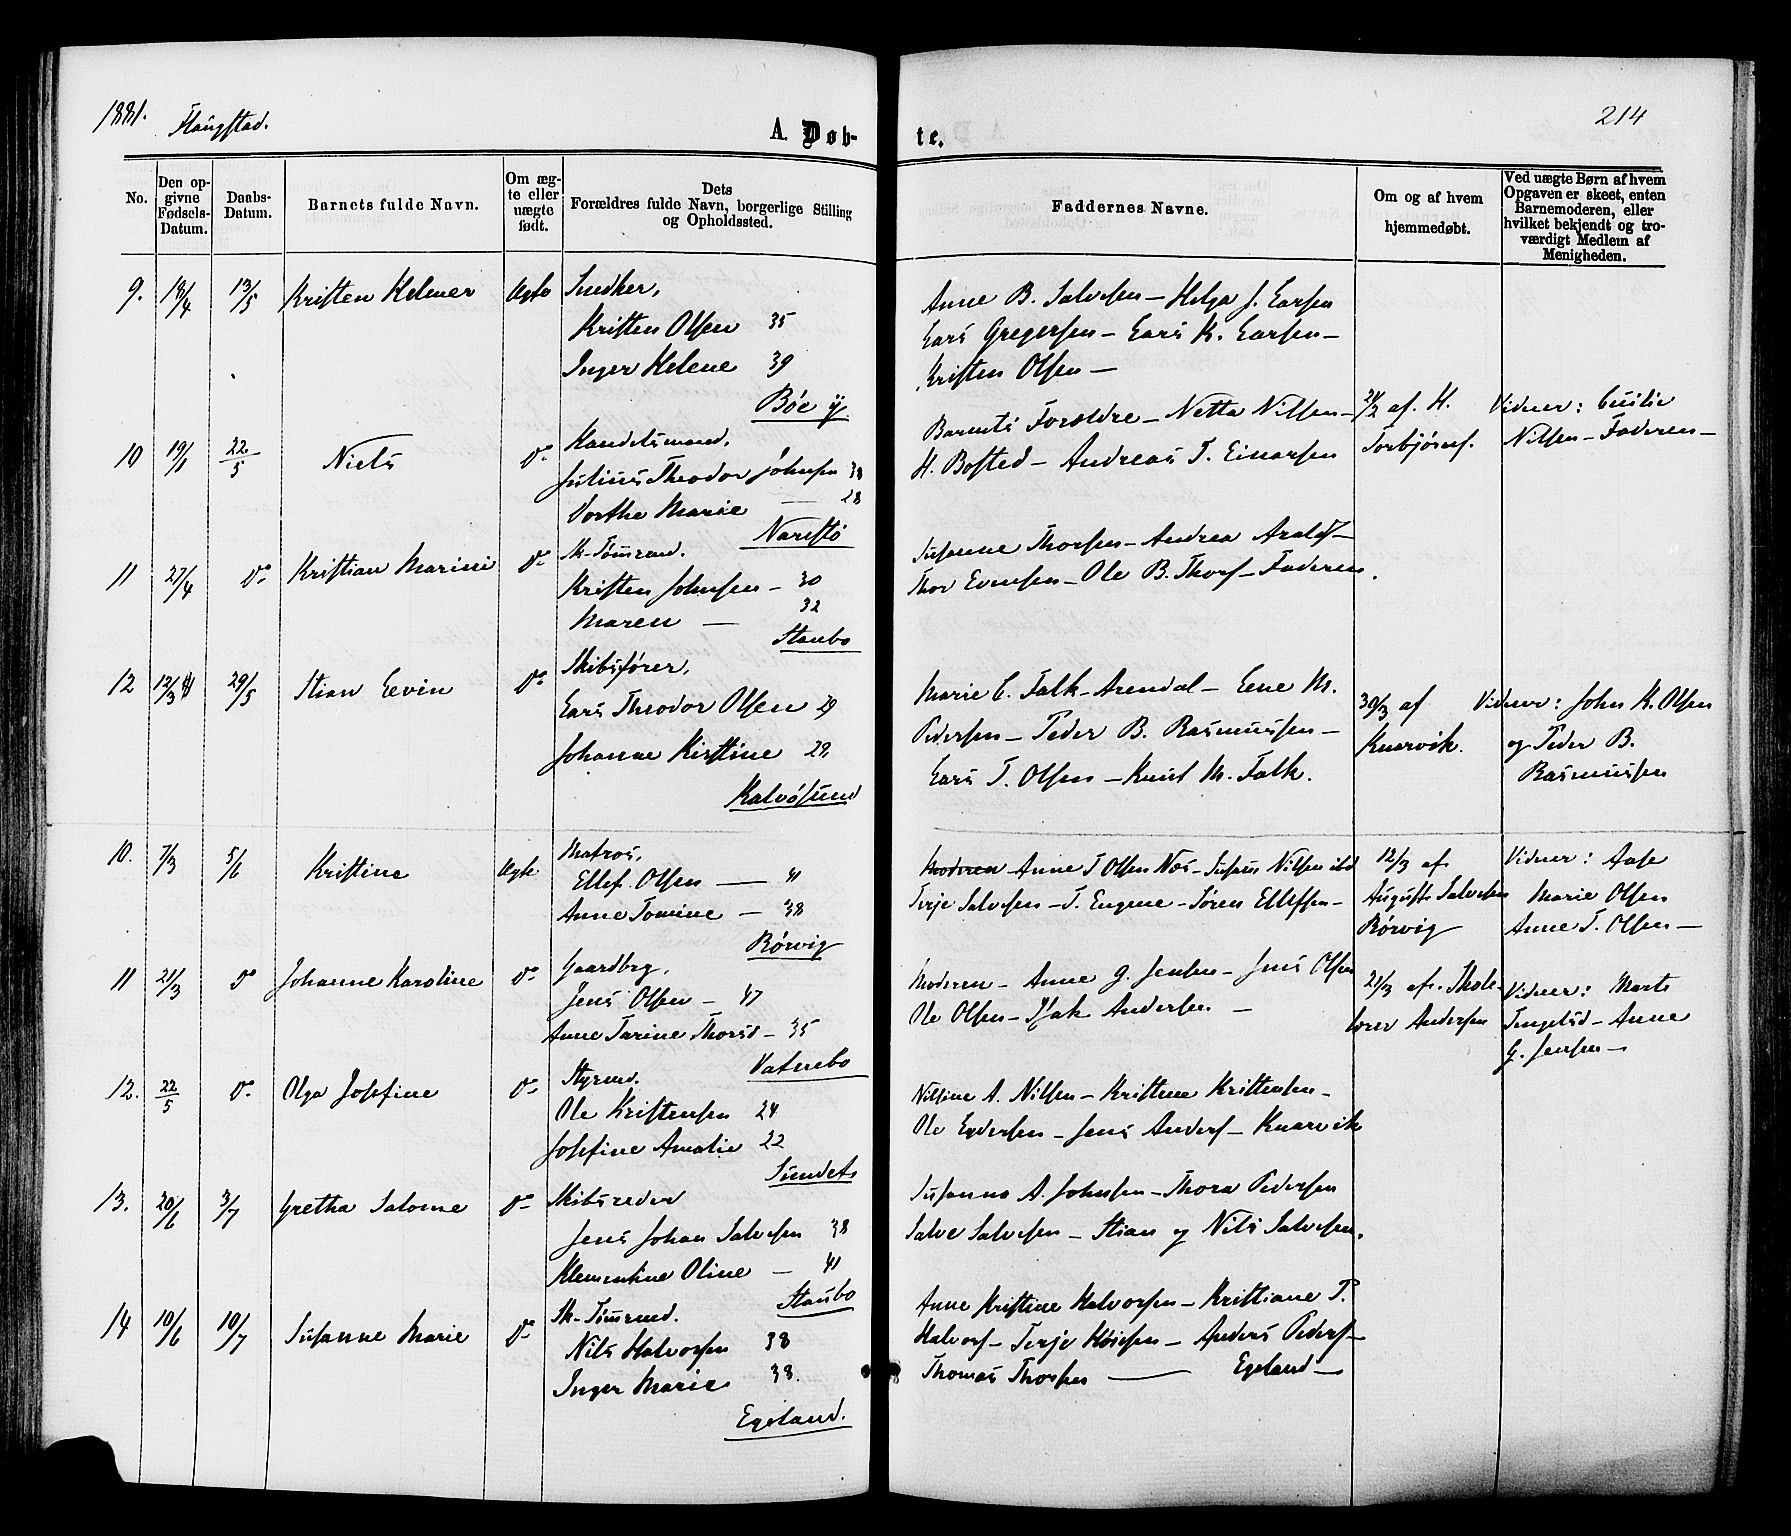 1881.
214
A. Døb-
te.
No.
Den op-
givne
Fødsels-
Datum.
Daabs-
Datum.
Barnets fulde Navn.
Om æg-
te eller
uægte
født.
Dets
Forældres fulde Navn, borgerlige Stilling
og Opholdssted.
Faddernes Navne.
Om og af hvem
hjemmedøbt.
Ved uægte Børn af hvem
Opgaven er skeet, enten
Barnemoderen, eller
hvilket bekjendt og tro-
værdigt Medlem af
Menigheden.
9. 18/4 13/5 Kristen Helmer Ægte Snedker,
Kristen Olsen 35
Inger Helene 39
Bøe
Anne B. Salvesen – Helga J. Larsen
Lars Gregersen – Lars K. Larsen –
Kristen Olsen –
10 19/1 22/5 Niels Do Handelsmand,
Julius Theodor Johnsen 38
Dorthe Marie — 28
Narestø
Barnets Forældre – Netta Nilsen –
H. Bosted – Andreas T. Einarsen
af H.
Torbjørns.
Vidner: Cecilie
Nilsen – Faderen –
11 27/4 Do Kristian Marine Do Sk-Tømmend.
Kristen Johnsen – 30
Maren — 32
Staubo
Susanne Thorsen – Andrea Aralds –
Thor Evensen – Ole B. Thors – Faderen.
12 12/3 29/5 Stian Levin Do Skibsfører,
Lars Theodor Olsen 29
Johanne Kirstine 29,
Kalvøsund
Marie C. Falk – Arendal – Lene M.
Pedersen – Peder B. Rasmussen –
Lars T. Olsen – Knut M. Falk.
30/3 af
Knarvik.
Vidner: John K. Olsen
og Peder B.
Rasmussen
10. 7/3 5/6 Kristine Ægte Matros,
Ellef Olsen — 41
Anne Tomine – 38
Rørvig
Moderen – Anne T Olsen Næs – Nilsen ibd
Terje Salvesen – T. Eugene – Søren Ellefsen –
12/3 af
August Salvesen
Rørvig
Vidner: Aase
Marie Olsen
Anne T. Olsen –
11 21/3 Do Johanne Karoline Do Gaardbrg,
Jens Olsen – 47
Anne Tarine Thorsd – 35
Vatnebo
Moderen – Anne G. Jensen – Jens Olsen
Ole Olsen – Isak Andersen –
21/3 af
Andersen
Vidner: Marte
Tengelsd – Anne
G. Jensen –
12. 22/5 Do Olga Josefine Do Styrmd.
Ole Kristensen 24
Josefine Amalie 22
Sundet
Nilsine A. Nilsen – Kristine Kristensen –
Ole Egdersen – Jens Anders – Knarvik
13. 20/6 3/7 Gretha Salome Do Skibsreder
Jens Johan Salvesen 38
Klementine Oline – 41
Staubo
Susanna A. Johnsen – Thora Pedersen
Salve Salvesen – Stian og Nils Salvesen.
14 10/6 10/7 Susanne Marie Do Sk-Tømmend.
Nils Halvorsen 38
Inger Marie 38.
Egeland.
Anne Kristine Halvorsen – Kristiane T.
Halvors – Terje – Anders Peders –
Thomas Thorsen — Egeland –